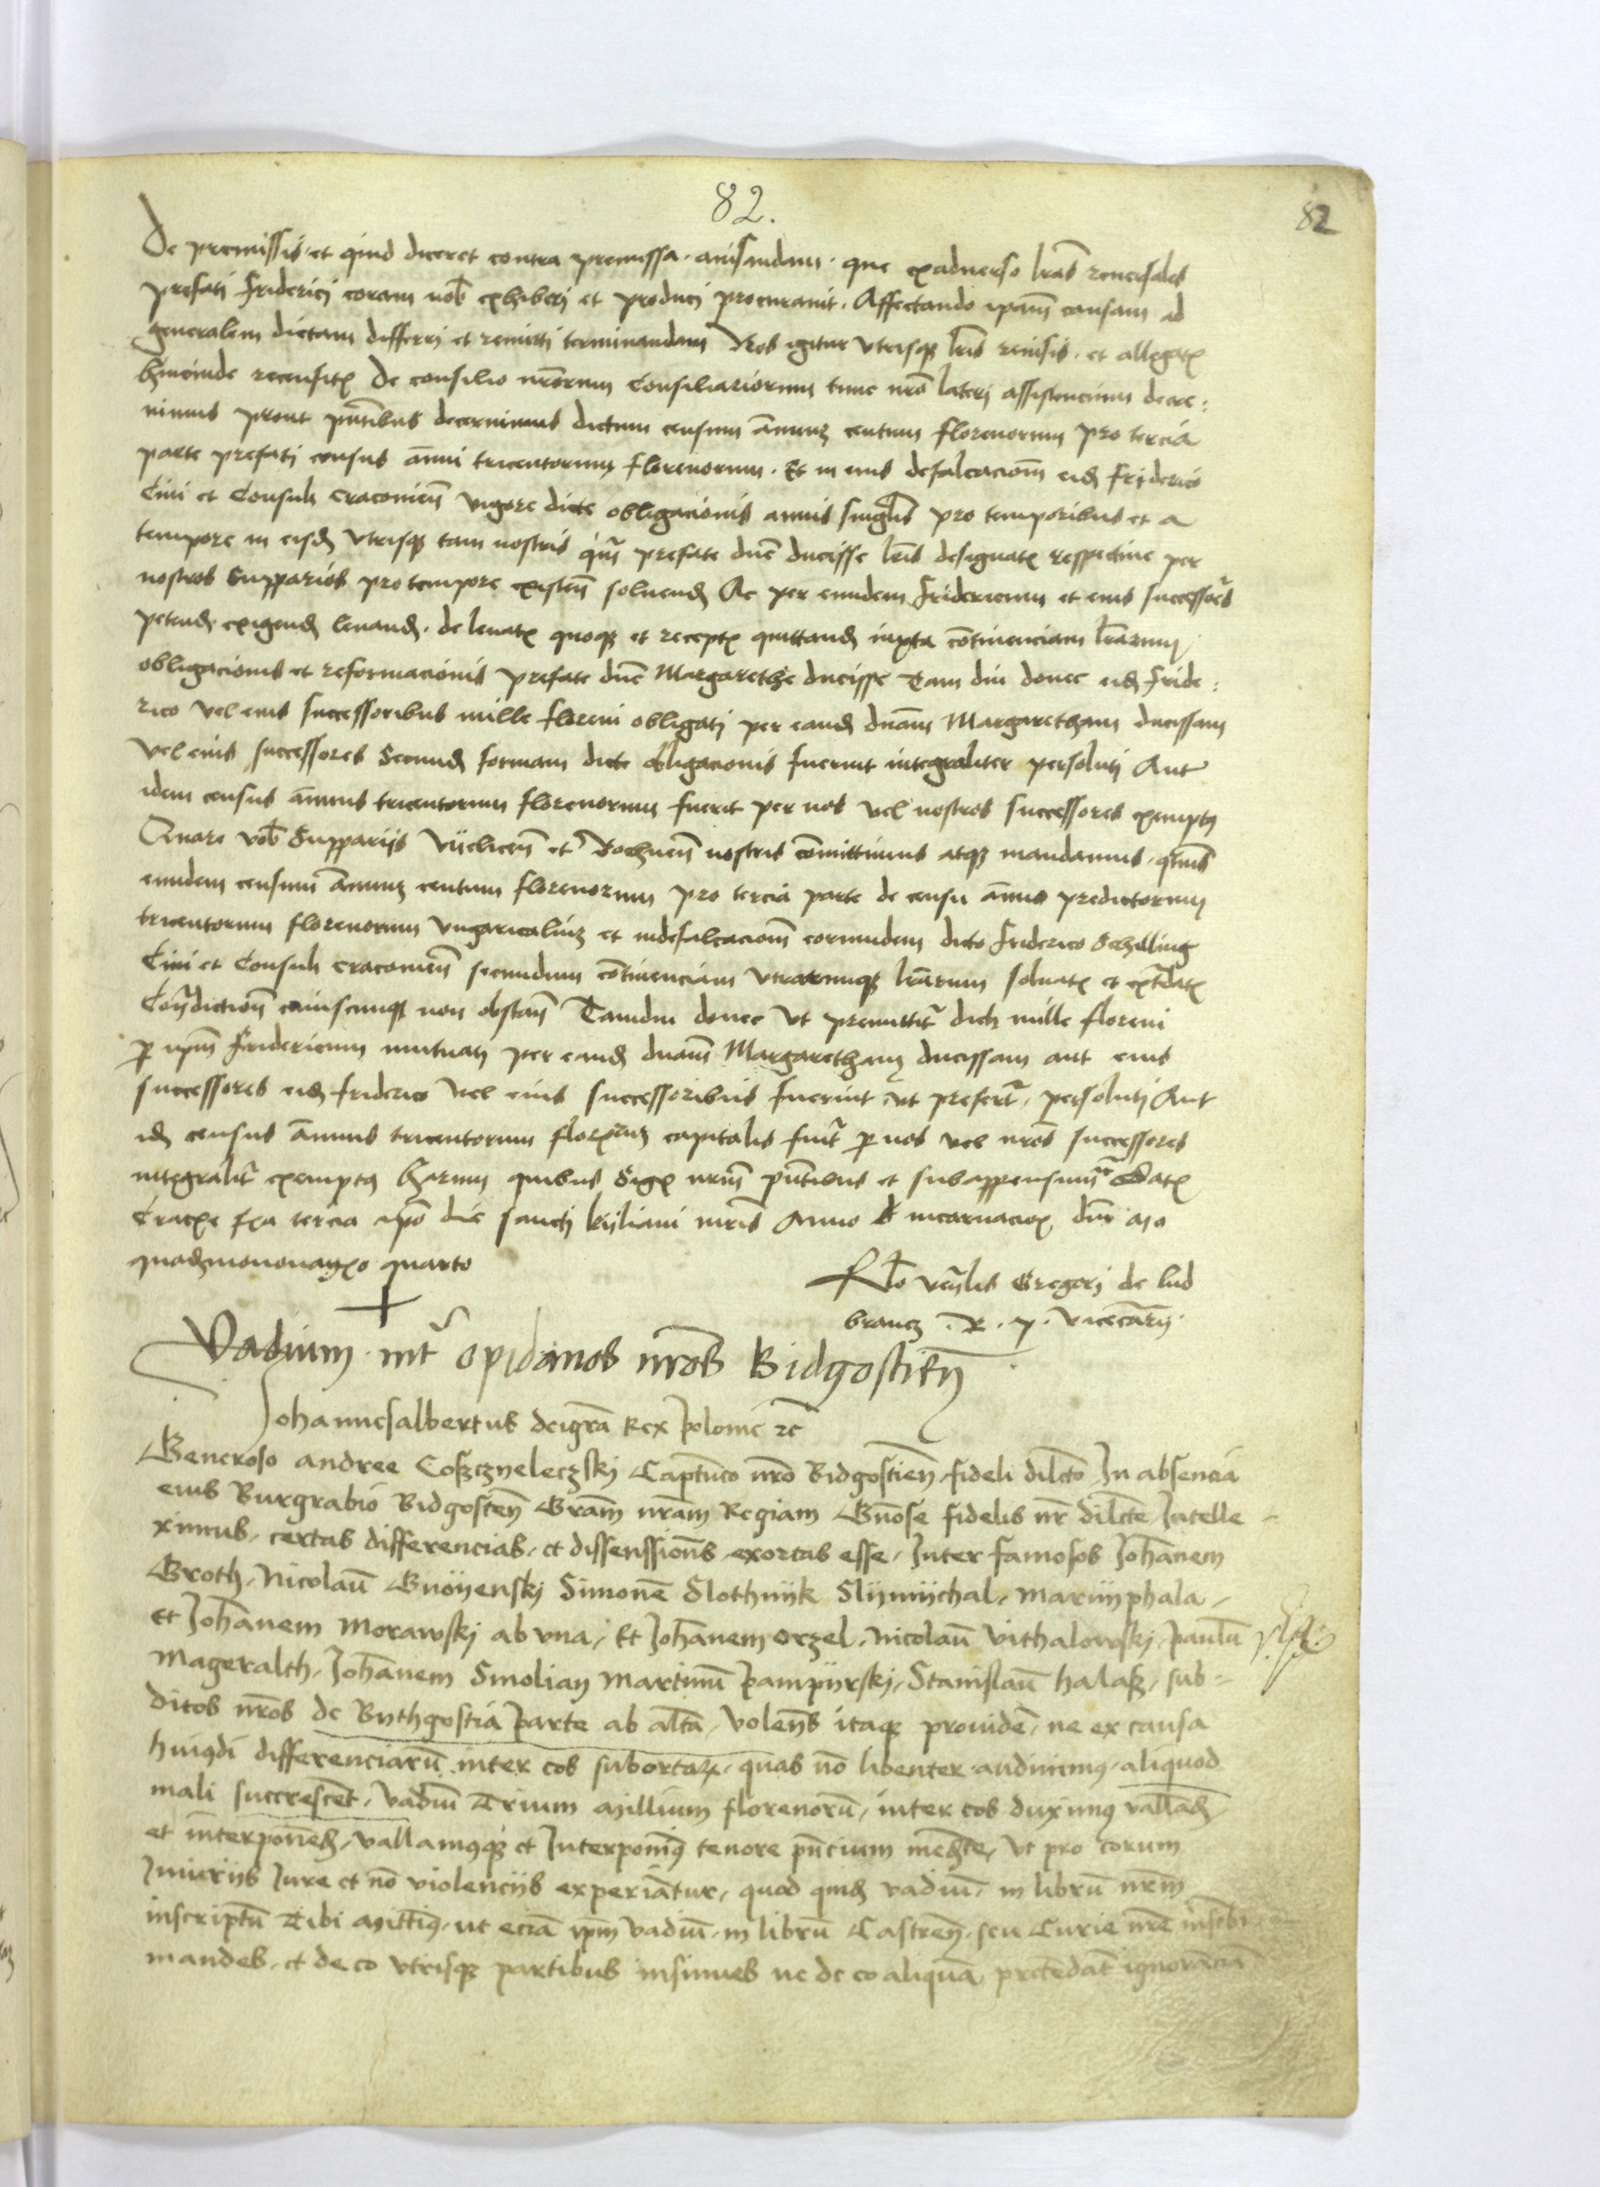 82.
82
De premissis et quid diceret contra premissa avisandam que exadverso lras reversales
prefati friderici coram nob exhiberi et produci procuravit. Affectando ipam causam ad
generalem dietam differri et remitti terminandam Nos igitur vtrisque lris revisis et allegatis
hincinde recensitis De consilio nrorum Consiliariorum tunc nro lateri assistencium decre:
vimus prout pntibus decernimus dictum censum annuum centum florenorum pro tercia
parte prefati census annui tricentorum florenorum. Et in eius defalcacionem eidem friderico
Civi et Consuli cracoviens vigore dicte obligacionis annis singulis pro temporibus et a
tempore in eisdem vtrisque tam nostris quam prefate dne ducisse lris designatis respective per
nostros Supparios pro tempore existen solvend Ac per eundem fridericum et eius successores
petend exigend levand. de levatis quoque et receptis quittand iuxta continenciam lrarum
obligacionis et reformacionis prefate dne Margarethe ducisse Tam diu donec eidem fride:
rico vel eius successoribus mille floreni obligati per eandem dnam Margaretham ducissam
vel eius successores Secundum formam dicte obligacionis fuerint integraliter persoluti Aut
idem census annuus tricentorum florenorum fuerit per nos vel nostros successores exemptus
Quare vob Suppariis Vyelicen et Bochnen nostris committimus atque mandamus. quatenus
eundem censum annuum centum florenorum pro tercia parte de censu annuo predictorum
tricentorum florenorum vngaricalium et indefalcacionem eorundem dicto friderico Schilling
Civi et Consuli cracovien secundum continenciam vtrarumque lrarum solvatis et extradatis
Contradiction cuiuscunque non obstan Tamdiu donec vt premittitur dicti mille floreni
per ipsum fridericum mutuati per eandem dnam Margaretham ducissam aut eius
successores eidem friderico vel eius successoribus fuerint vt prefertur persoluti Aut
idem census annuus tricentorum florenorum capitalis fuerit per nos vel nros successores
integraliter exemptus Harum quibus Sig nrum pntibus et subappensum Datum
Cracovie feria tercia ipso die sancti kyliani mris Anno ab incarnacione dni Mo
quadringentesimononagesimo quarto
Rlo venlis Gregorj de lud
brancz. R. p. vicecancrij.
Vadium intr opidanos nros Bidgostien
Johannesalbertus deigra Rex polonie etc
Generoso andree Coszczyeleczski Captneo nro Bidgostien fideli dilcto In absencia
eius Burgrabio Bidgosten Gram nram Regiam Gnose fidelis nr dilcte Intelle-
ximus certas differencias et dissenssiones exortas esse Inter famosos Johanem
Groth Nicolau Gnoyenski Simone Slothnyk Slymychal Marnyphala
Et Johanem Morawski ab vna Et Johanem orzel Nicolau Vithalowski paulu
Mageralth Johanem Smolian Martinu pampyrski Stanislau halasz sub-
ditos nros de Bythgostia parte ab alta volens itaque provide ne ex causa
huiusdi differenciaru inter eos subortarum quas no libenter audivimus aliquod
mali succresceret vadiu Trium millium florenoru inter eos duximus vallad
et interponed vallamusque et Interponimus tenore pncium mediate vt pro eorum
Iniuriis Iure et no violenciis experiatur quod quid vadiu in libru nrm
inscriptu Tibi mittimus ut ecia ipm vadiu in libru Castren seu Curie nre inscbi
mandes et de eo vtrisque partibus insinues ne de eo aliqua pretendat ignorancia